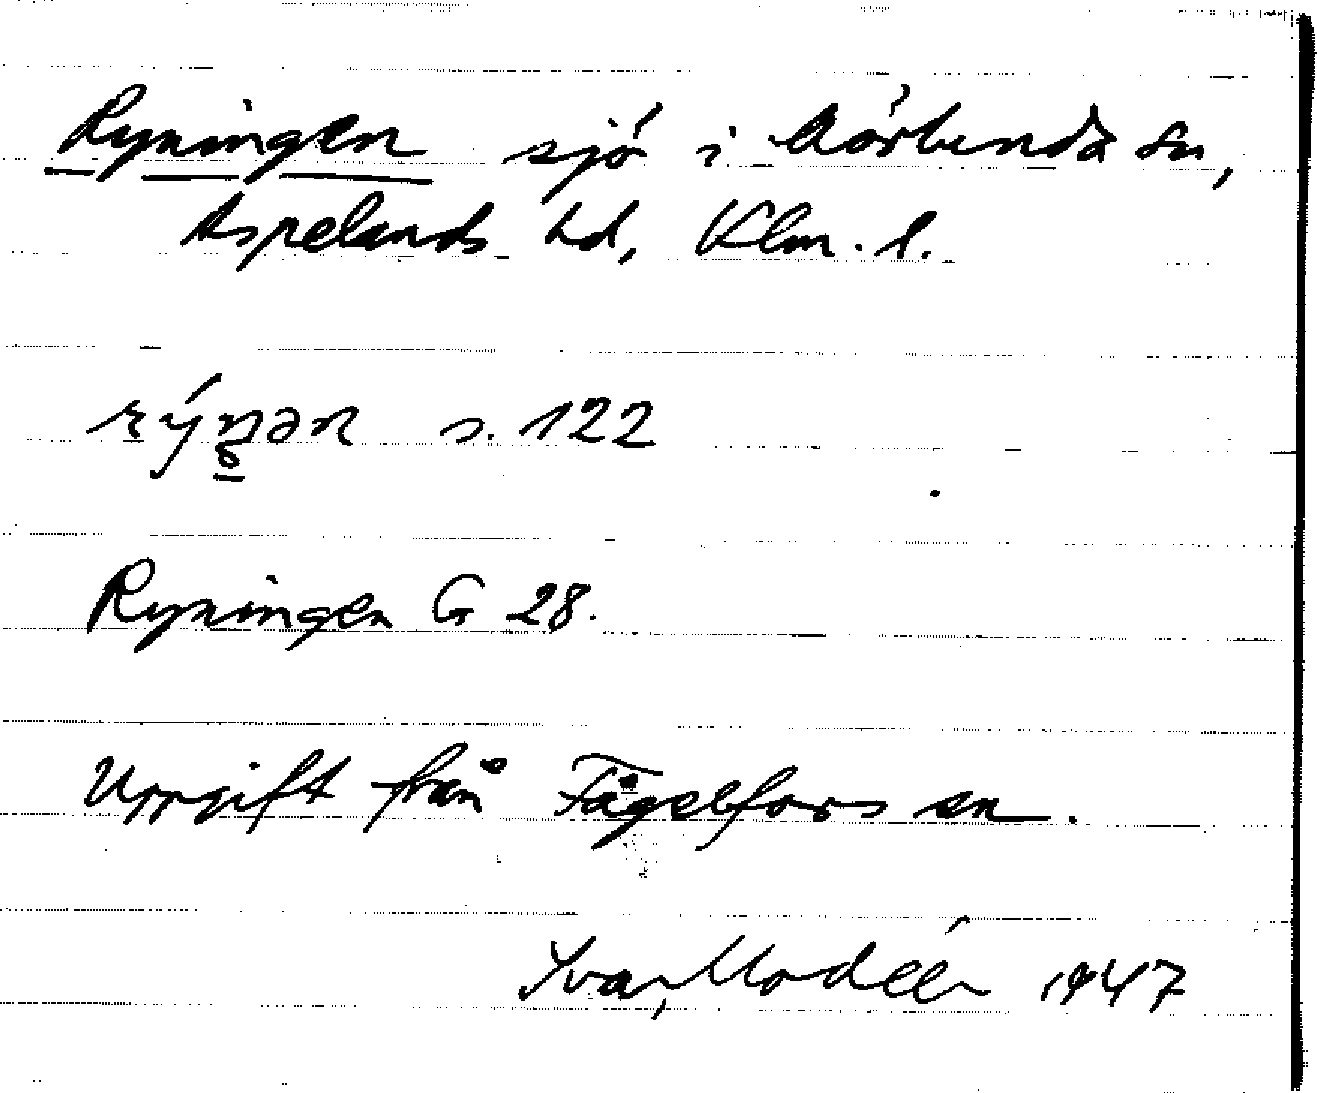 Ryningen sjö i Mörlunda sn,
Aspelands hd, Klm. l.
s. 122
Ryningen G 28.
Uppgift från Fågelfors sn.
Ivar Modéer 1947